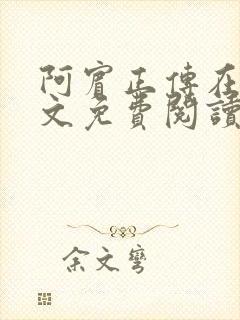 阿賓正傳在
文免費閱讀
余文彎